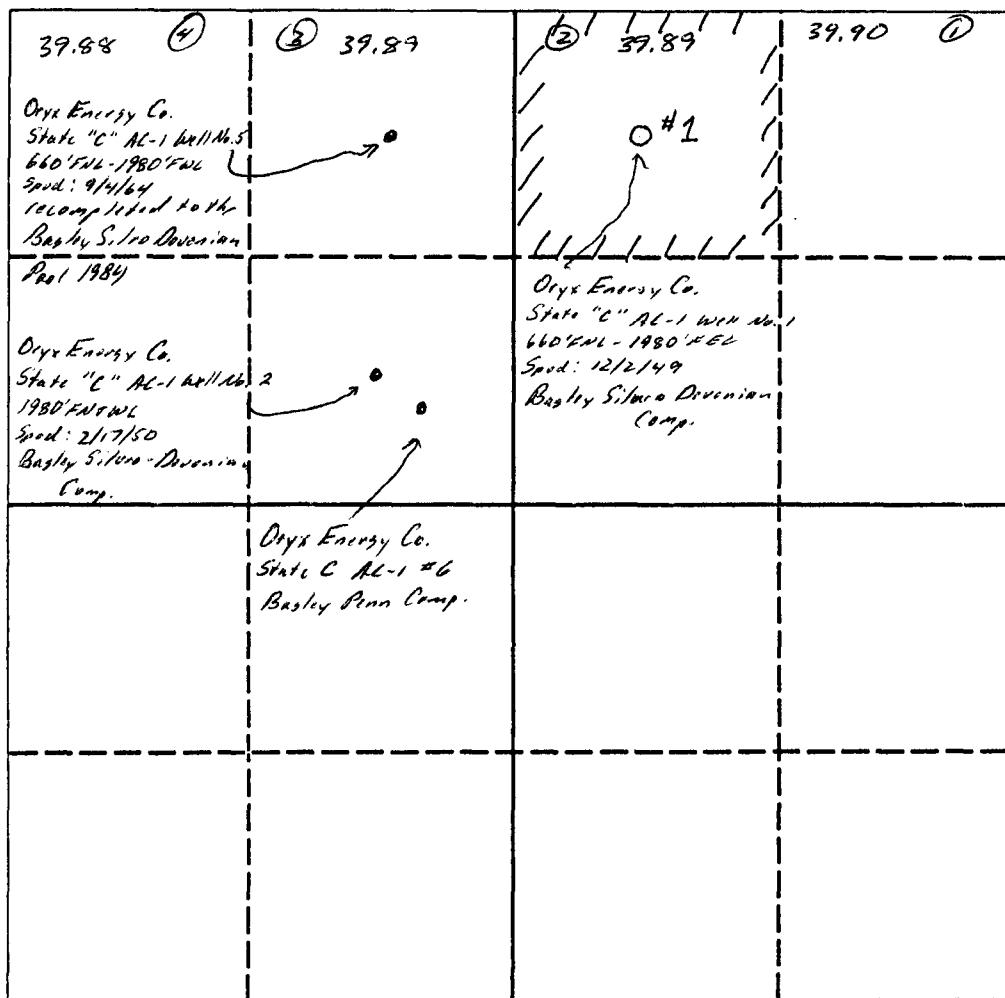 39.88 ④
③ 39.89
② 39.89
39.90 ①
Oryx Energy Co.
State "C" AC-1 Well No. 5
660'FNL-1980'FWL
Spud: 9/4/64
recompleted to the
Bagley Siluro Devonian
Pool 1984
#1
Oryx Energy Co.
State "C" AC-1 Well No. 2
1980'FN&WL
Spud: 2/17/50
Bagley Siluro-Devonian
Comp.
Oryx Energy Co.
State "C" AC-1 Well No. 1
660'FNL-1980'FEL
Spud: 12/2/49
Bagley Siluro Devonian
Comp.
Oryx Energy Co.
State C AC-1 #6
Bagley Penn Comp.